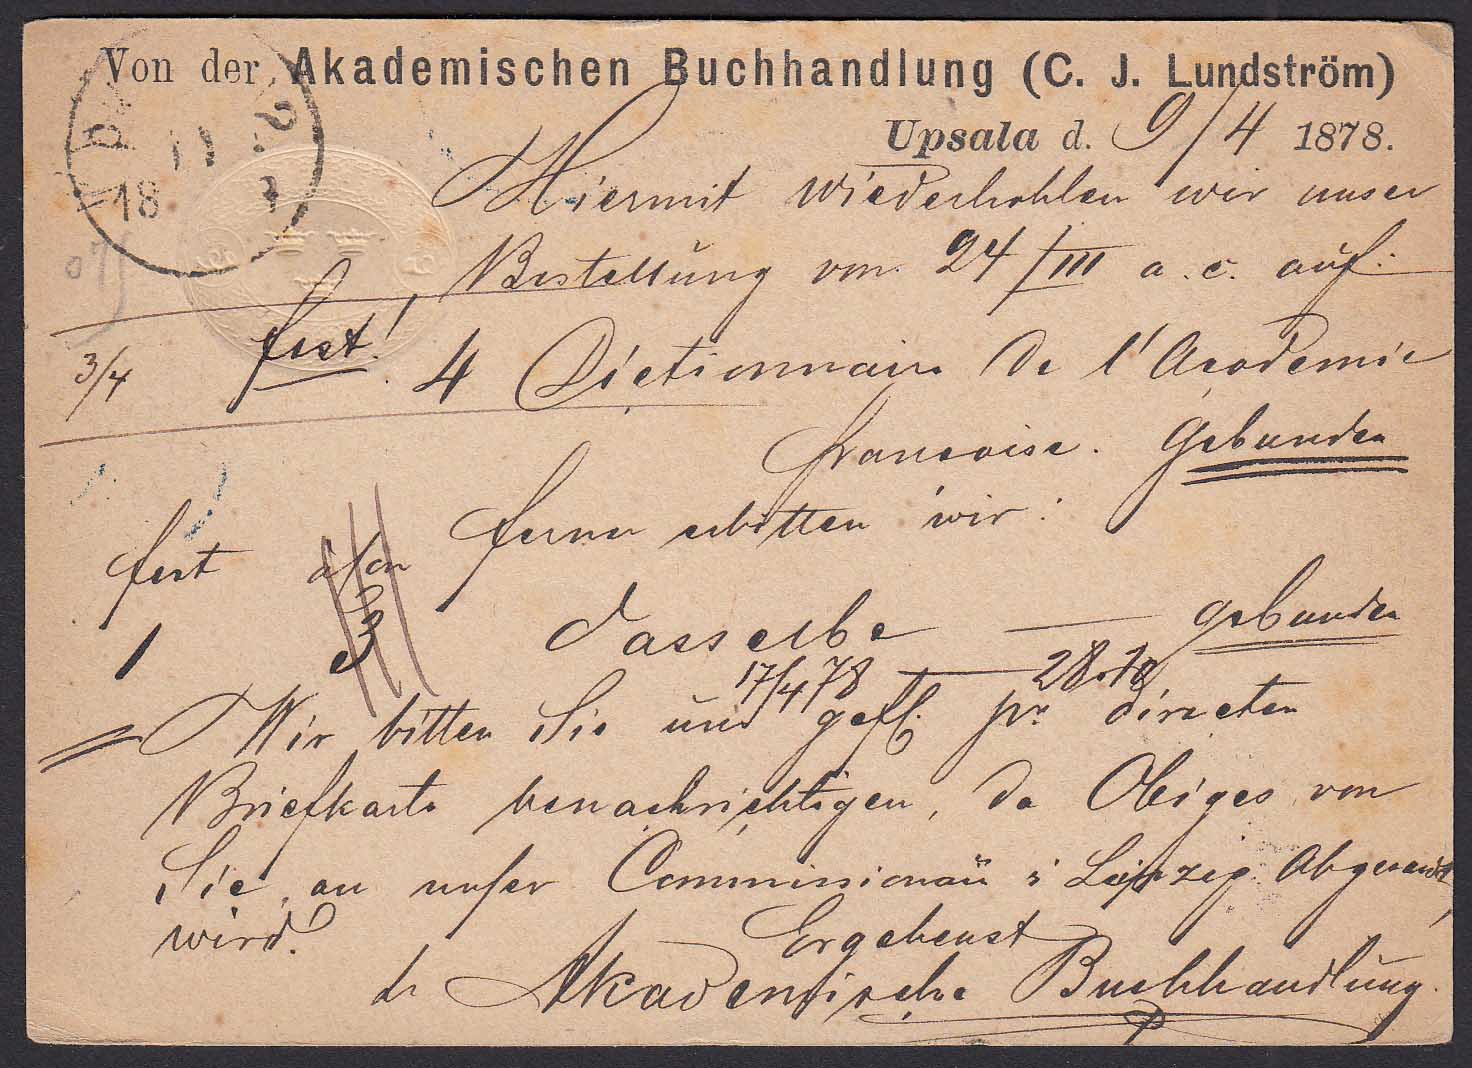 Von der Akademischen Buchhandlung (C. J. Lundström)
Upsala d. 9/4 1878.
18 11
Hiermit wiederhohlen wir unser
Bestellung vom 24/III a. c. auf:
3/4 fest! 4 Dictionnaire de l'Academie
francaise. Gebunden
fest ferner erbitten wir:
1 3 dasselbe — gebunden
17/4 78 — 28.10
Wir bitten Sie uns gefl. pr directen
Briefkarte benachrichtigen, da Obiges von
Sie, an unser Commissionär i Leipzig Abgesandt
wird.
Ergebenst
Akademische Buchhandlung.